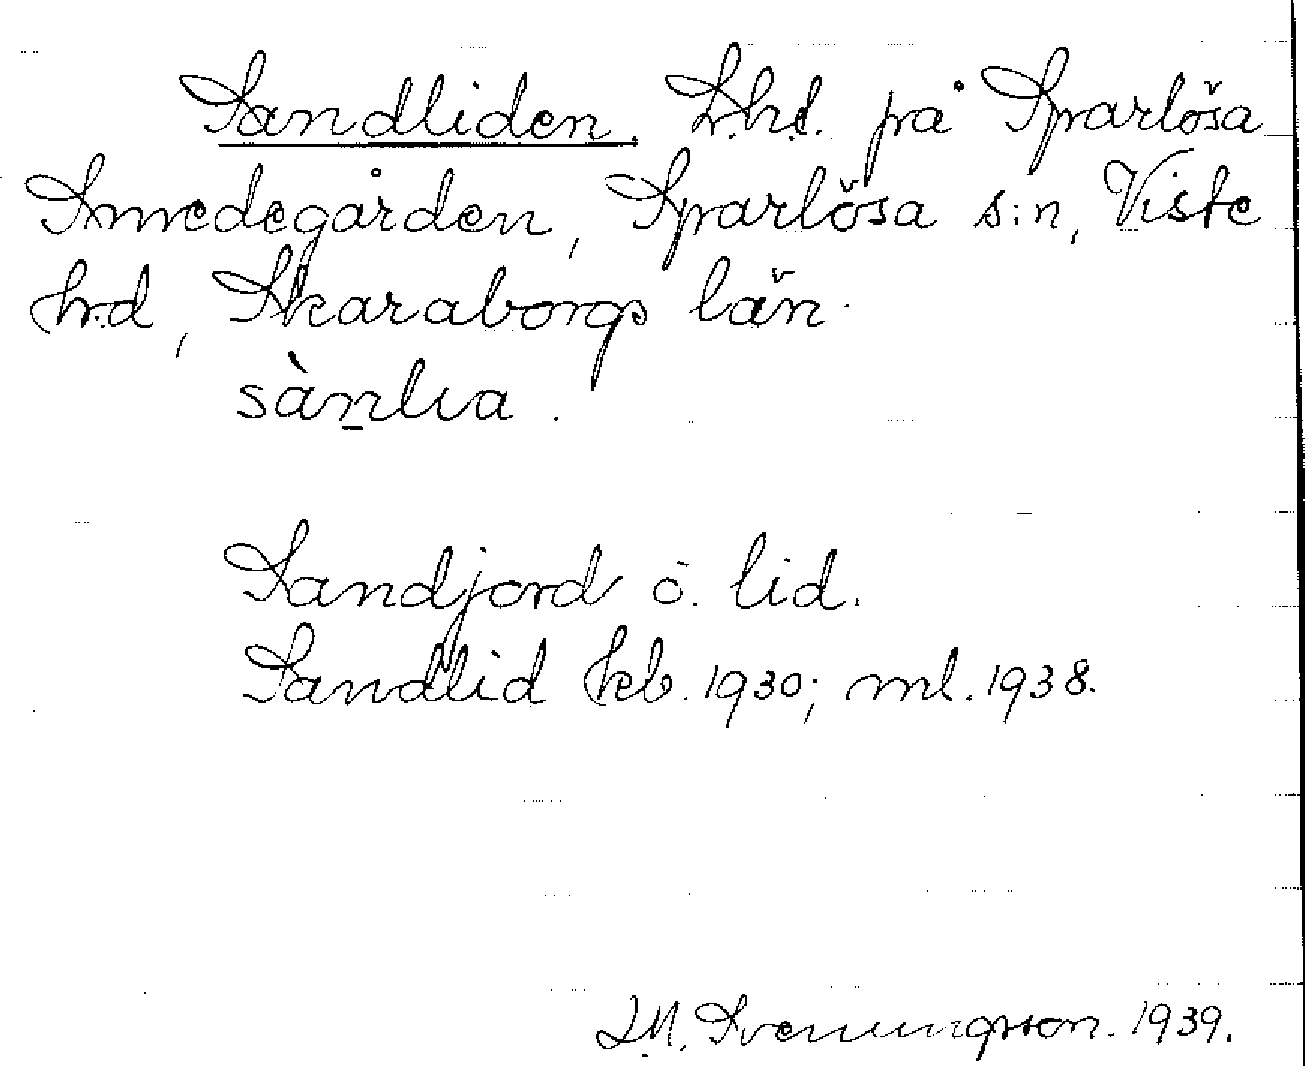 Sandliden. L.h.t. på Sparlösa
Smedegården, Sparlösa s:n, Viste
h:d, Skaraborgs län.
sàn̲lıa.
Sandjord o. lid.
Sandlid kb. 1930; ml. 1938.
Svenungsson. 1939.